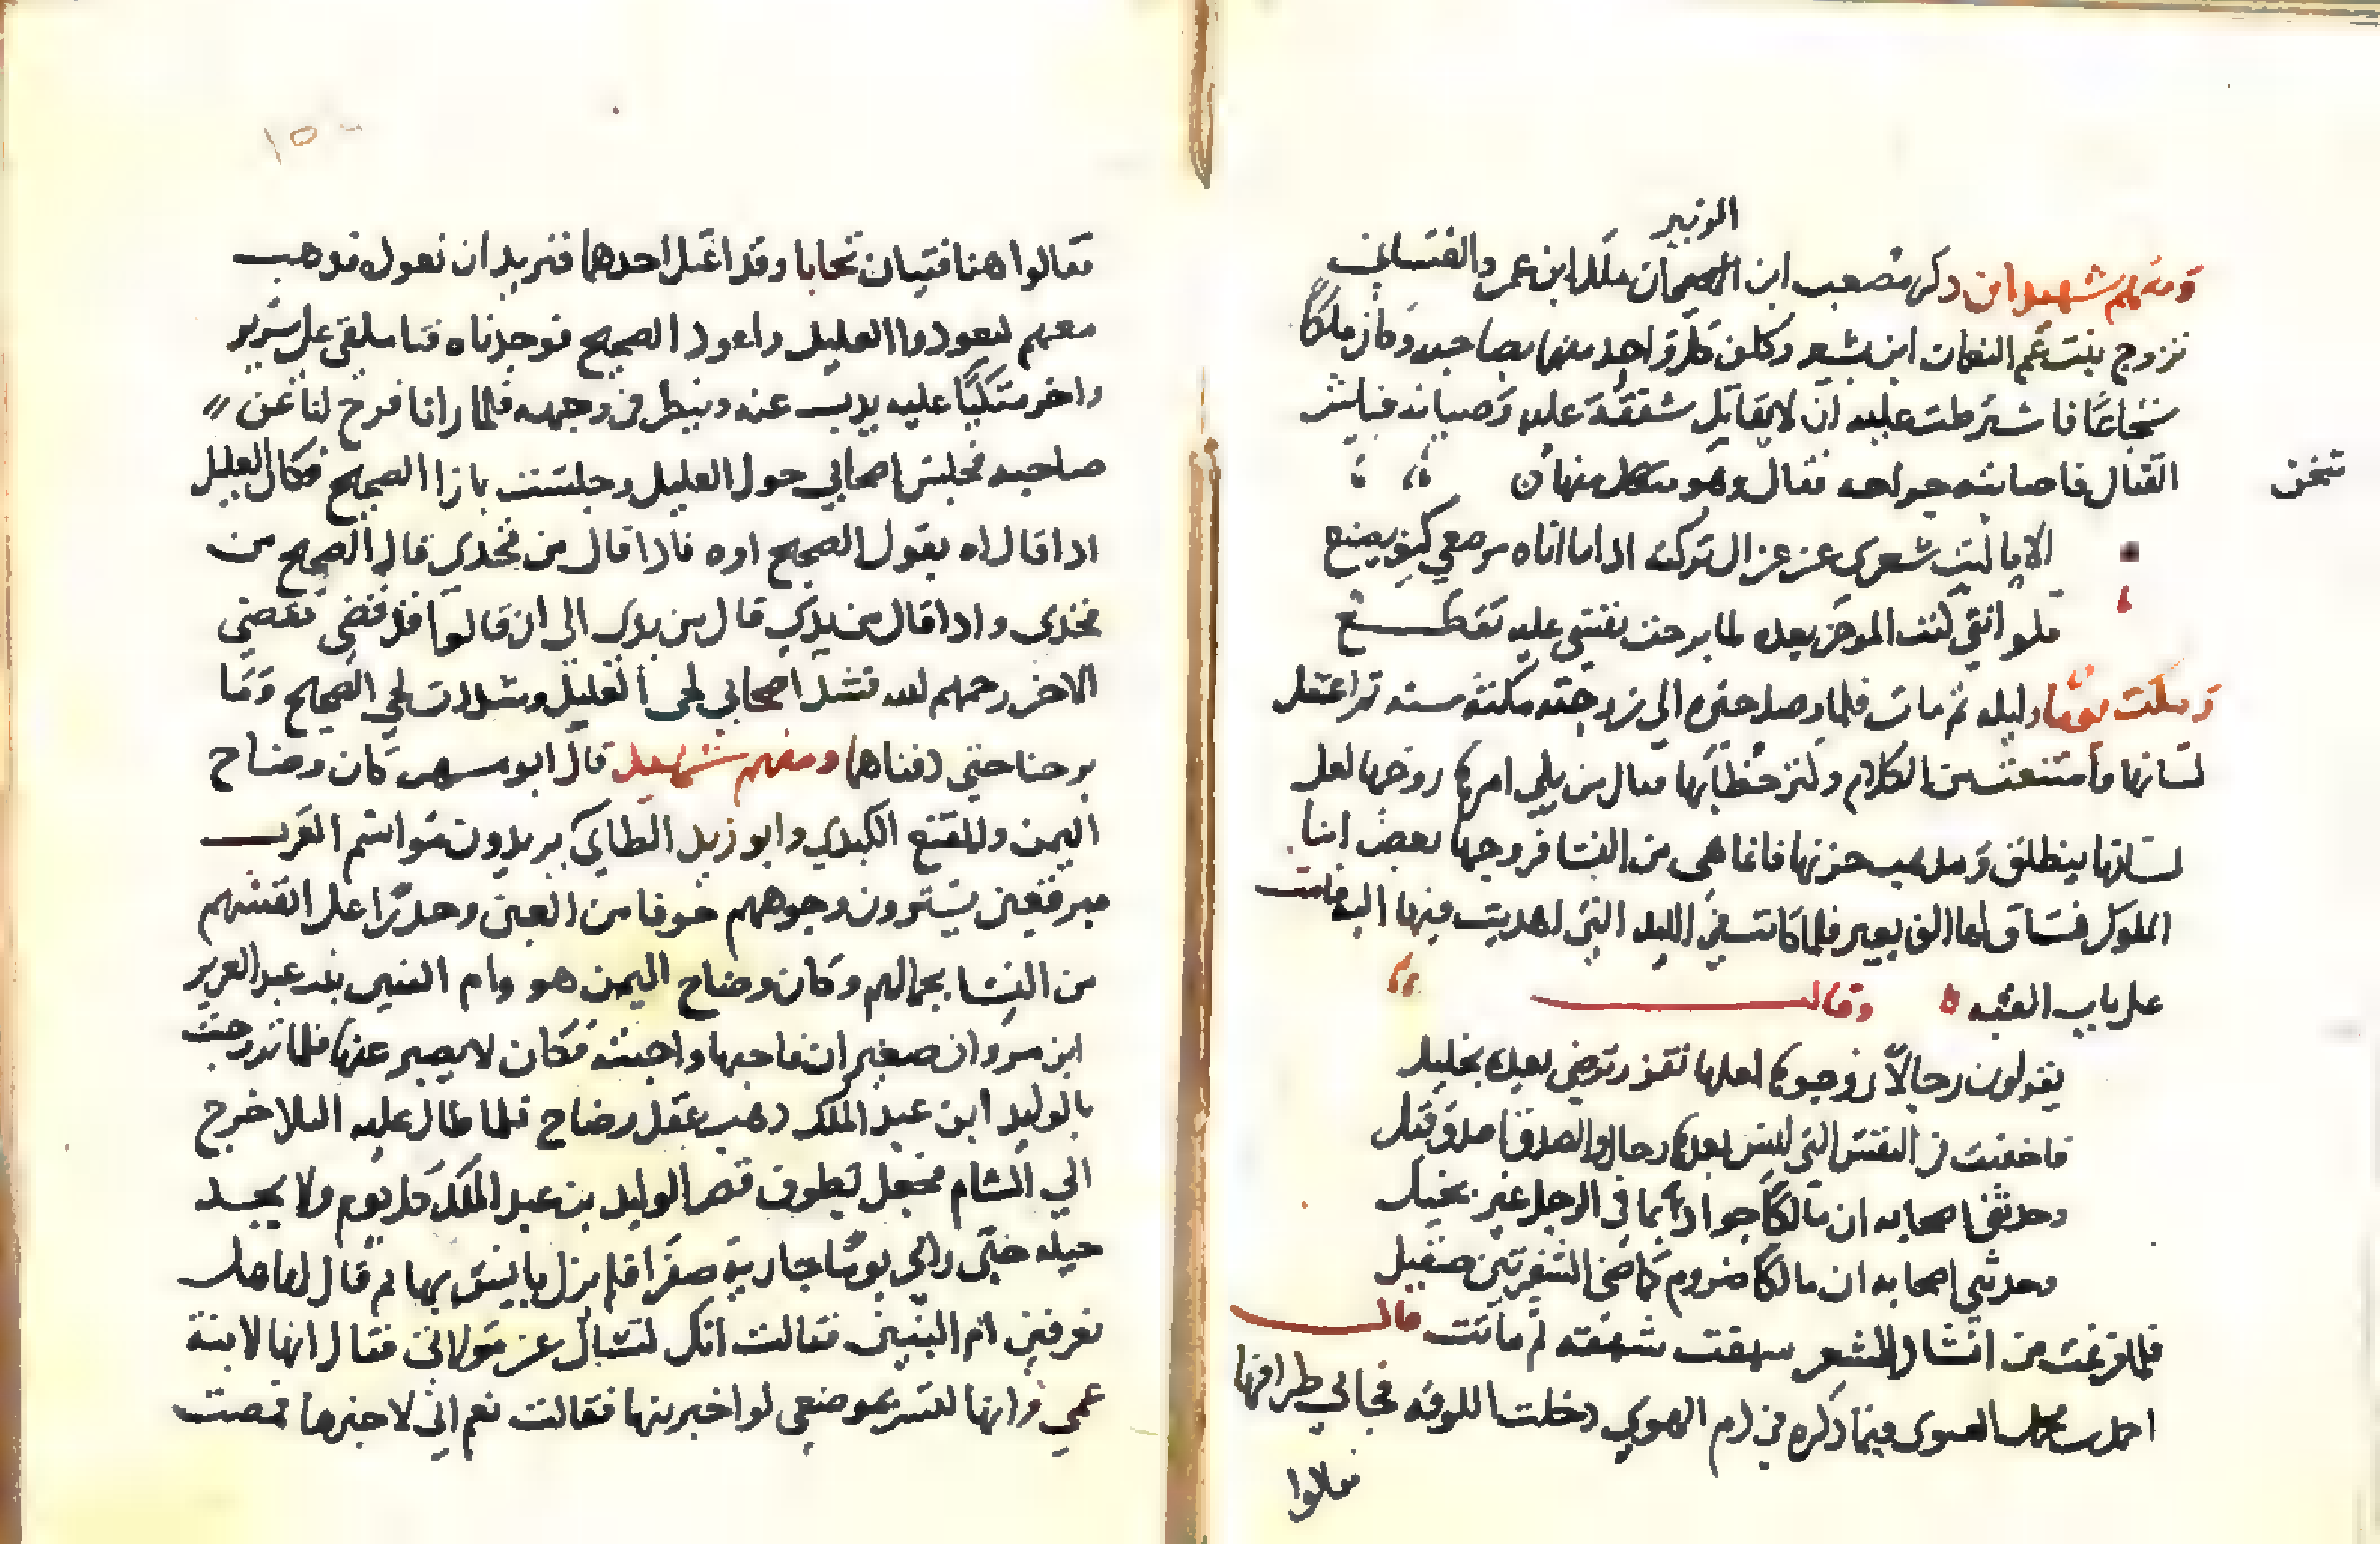 الزبير
ومنهم شهيدان ذكر مصعب ابن ان ملك ابن عمرو الغساني
تزوج بنت عم النعمان ابن بشير وكان كل واحد منهما بصاحبه وكان ملكًا
شجاعًا فاشترطت عليه ان لا يقاتل شفقة عليه وصيانه فباشر
القتال فاصابته جراحه فقال وهو منها
تنخن
الا يا ليت شعري عن غزال تركته اذا ما اتاه مصرعي كيف يصنع
فلو انني كنت الموخر بعده لما برحت نفسي عليه تقطع
ومكث يومًا وليله ثم مات فلما وصل خبره الى زوجته مكثت سنه ثم اعتقل
لسانها وامتنعت من الكلام وكثر خطابها فقال من يلي امرها زوجها لعل
لسانها ينطلق ويذهب حزنها فانما هي من النسا فزوجها بعض ابنا
الملوك فساق لها الف بعير فلما كانت في الليله التي اهديت فيها اليه قامت
على باب القبه وقالت
يقولون رجالا زوجوها لعلها تقر وترضى بعده بخليل
فاخفيت في النفس التي ليس بعدها رجال والصدق اصدق قيل
وحدثني اصحابه ان مالكًا جوادًا بما في الرحل غير بخيل
وحدثني اصحابه ان مالكًا ضروم كماضي الشفرتين صقيل
فلما فرغت من انشاد الشعر شهقت شهقه ثم ماتت قال
احمد فيما ذكره في ذم الهوى دخلت الكوفه فجا لي ظرافها
فقالوا
١٥٠
فقالوا هنا فتيان تحابا وقد اعتل احدهما فنريد ان نعوده فذهبت
معهم ليعودوا العليل واعود الصحيح فوجدناه فتا ملقى على سرير
واخر متكيًا عليه يذب عنه وينظر في وجهه فلما رانا فرج لنا عن
صاحبه فجلس اصحابي حول العليل وجلست بازا الصحيح فكان العليل
اذا قال اه يقول الصحيح اوه فاذا قال من فخذي قال الصحيح من
فخذي واذا قال من يدي قال من يدي الى ان قالوا قد قضى فقضى
الاخر رحمهم الله فشد اصحابي لحى العليل وشددت لحي الصحيح وما
برحنا حتى دفناهما ومنهم شهيد قال ابو مسهر كان وضاح
اليمن والمقنع الكندي وابو زبيد الطاي يريدون مواسم العرب
مبرقعين يسترون وجوههم خوفا من العين وحذرًا على انفسهم
من النسا بجمالهم وكان وضاح اليمن هو وام البنين بنت عبد العزيز
ابن مروان صغيران فاحبها واحبته فكان لا يصبر عنها فلما تزوجت
بالوليد ابن عبد الملك ذهب عقل وضاح فلما طال عليه البلا خرج
الي الشام فجعل يطوف قصر الوليد بن عبد الملك كل يوم ولا يجد
حيله حتى راي يومًا جارية صفرا فلم يزل يانس بها ثم قال لها هل
تعرفين ام البنين فقالت انك لتسال عن مولاتي فقال انها لابنة
عمي وانها لتسر بموضعي لو اخبرتها فقالت نعم اني لاخبرها فمضت